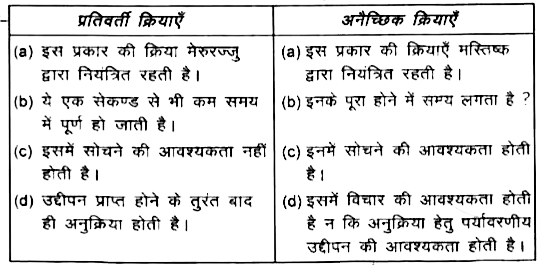 प्रतिवर्ती क्रियाएँ
(a) इस प्रकार की क्रिया मेरुरज्जु
द्वारा नियंत्रित रहती है।
(b) ये एक सेकण्ड से भी कम समय
में पूर्ण हो जाती है।
(c) इसमें सोचने की आवश्यकता नहीं
होती है।
(d) उद्दीपन प्राप्त होने के तुरंत बाद
ही अनुक्रिया होती है।
अनैच्छिक क्रियाएँ
(a) इस प्रकार की क्रियाएँ मस्तिष्क
द्वारा नियंत्रित रहती है।
(b) इनके पूरा होने में समय लगता है ?
(c) इनमें सोचने की आवश्यकता होती
है।
(d) इसमें विचार की आवश्यकता होती
है न कि अनुक्रिया हेतु पर्यावरणीय
उद्दीपन की आवश्यकता होती है।